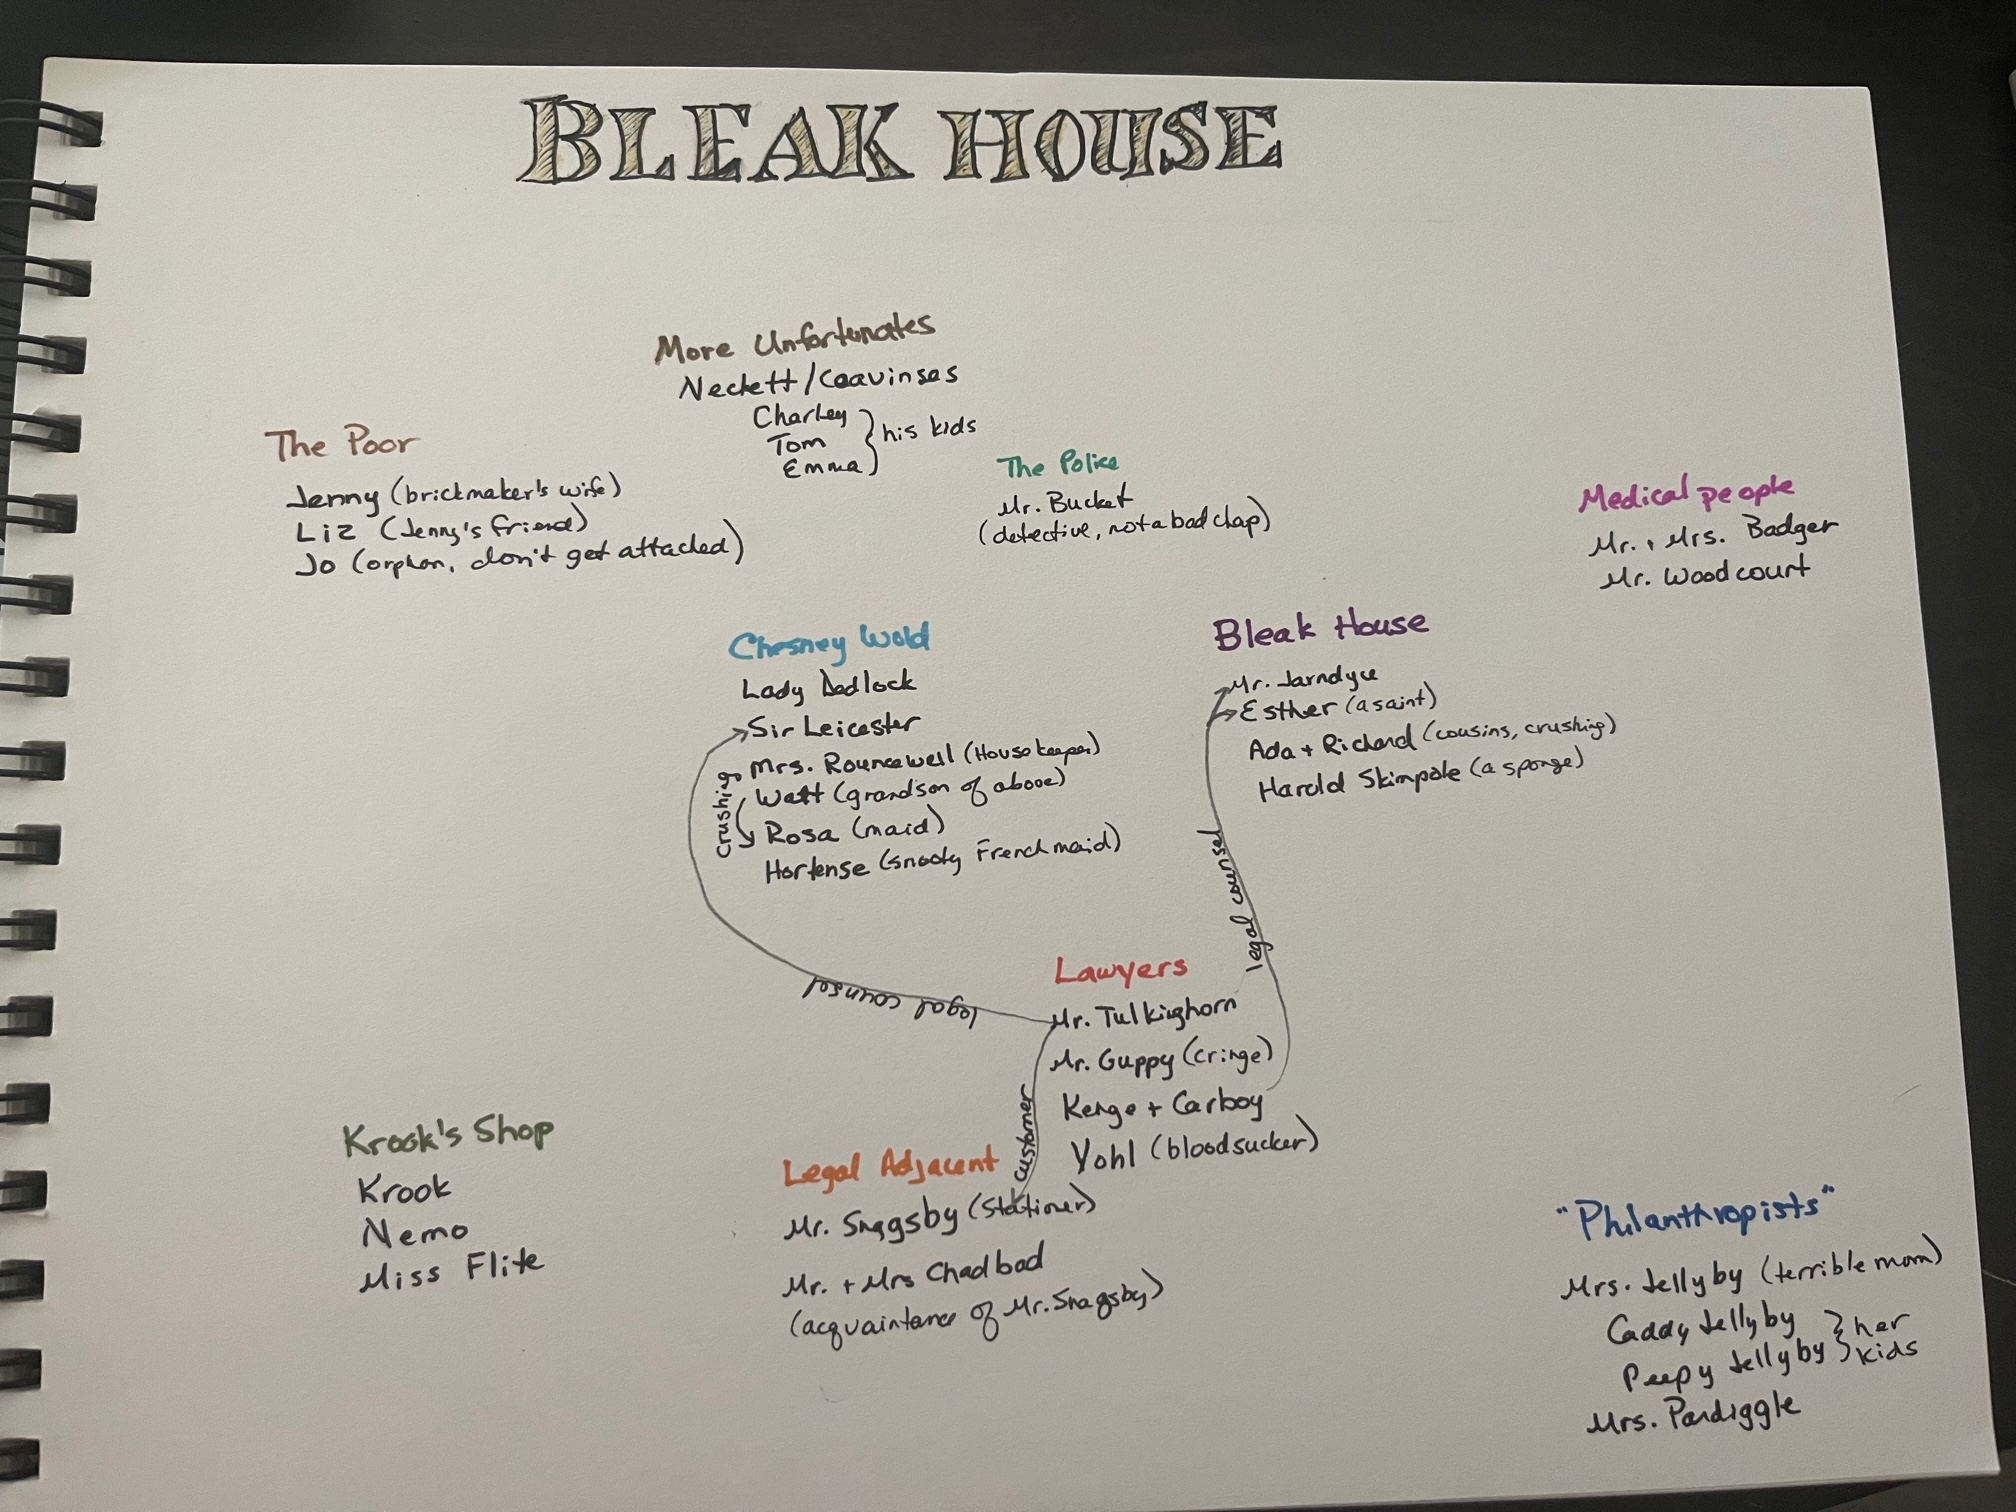 BLEAK HOUSE
More Unfortunates
Neckett/Coavinses
Charley
Tom
Emma
his kids
The Poor
Jenny (brickmaker's wife)
Liz (Jenny's friend)
Jo (orphan, don't get attached)
The Police
Mr. Bucket
(detective, not a bad chap)
Medical people
Mr. + Mrs. Badger
Mr. Woodcourt
Chesney Wold
Lady Dedlock
Sir Leicester
Mrs. Rouncewell (Housekeeper)
Watt (grandson of above)
Rosa (maid)
Hortense (snooty French maid)
crushing
Bleak House
Mr. Jarndyce
Esther (a saint)
Ada + Richard (cousins, crushing)
Harold Skimpole (a sponge)
legal counsel
legal counsel
Lawyers
Mr. Tulkinghorn
Mr. Guppy (cringe)
Kenge + Carboy
Vohl (bloodsucker)
customer
Krook's Shop
Krook
Nemo
Miss Flite
Legal Adjacent
Mr. Snagsby (Stationer)
Mr. + Mrs Chadbad
(acquaintance of Mr. Snagsby)
"Philanthropists"
Mrs. Jellyby (terrible mom)
Caddy Jellyby
Peepy Jellyby
her kids
Mrs. Pardiggle